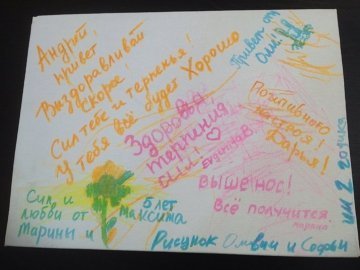 Андрей
привет!
Выздоравливай
скорее!
Сил тебе и терпенья!
У тебя всё будет Хорошо
Привет от
Оли!
Здоровья
терпения
Сил!
Позитивного
настроя!
Дарья!
ВЫШЕ НОС!
Всё получится.
Сил и
любви от
Марины и
Максима
5 лет
Рисунок Оливии и Софьи
им 2 годика